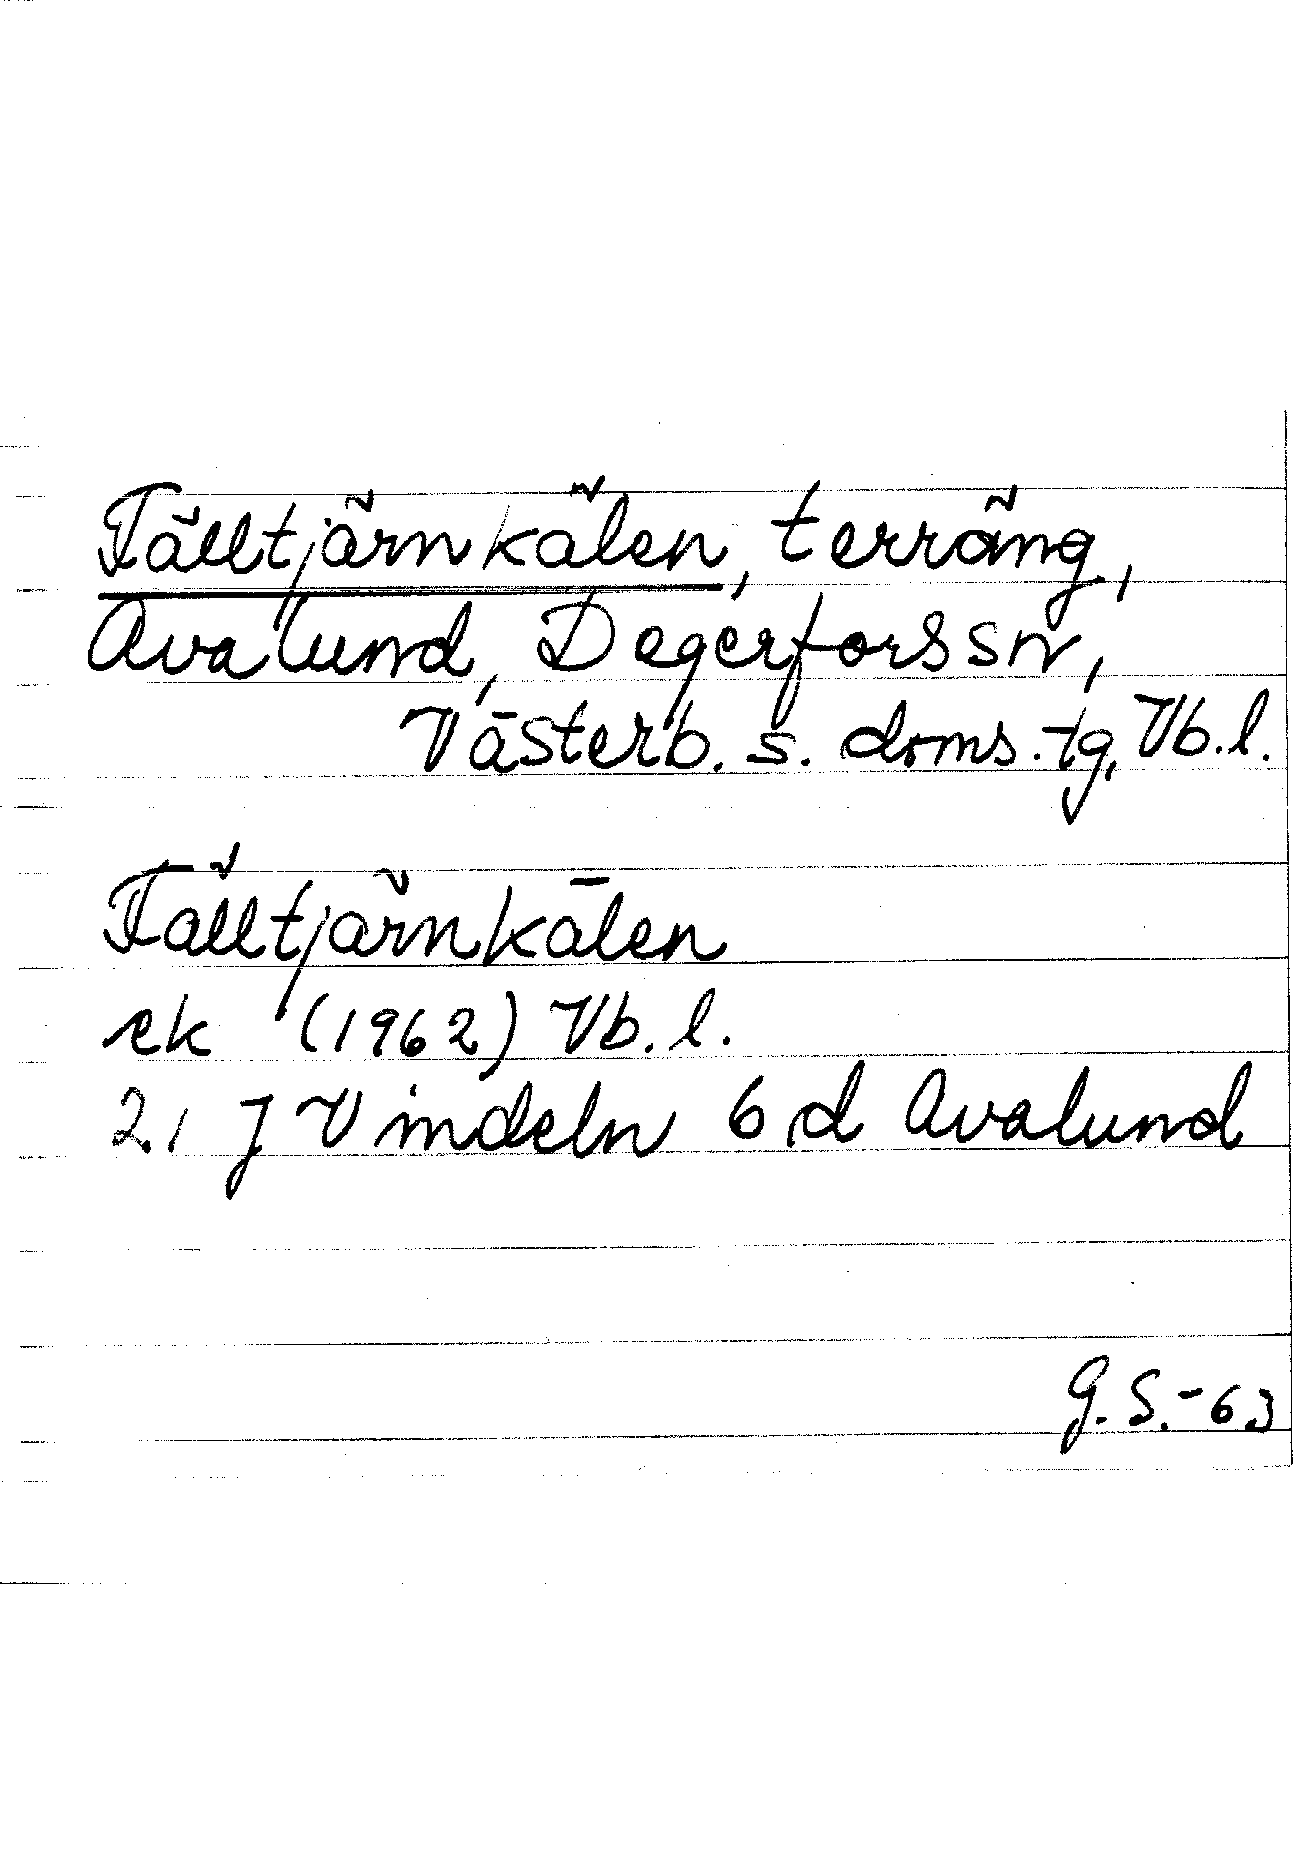 Fälltjärnkälen, terräng,
Avalund, Degerfors sn,
Västerb. s. doms. tg, Vb. l.
Fälltjärnkälen
ek (1962) Vb. l.
21 J Vindeln 6 d Avalund
G. S. -63